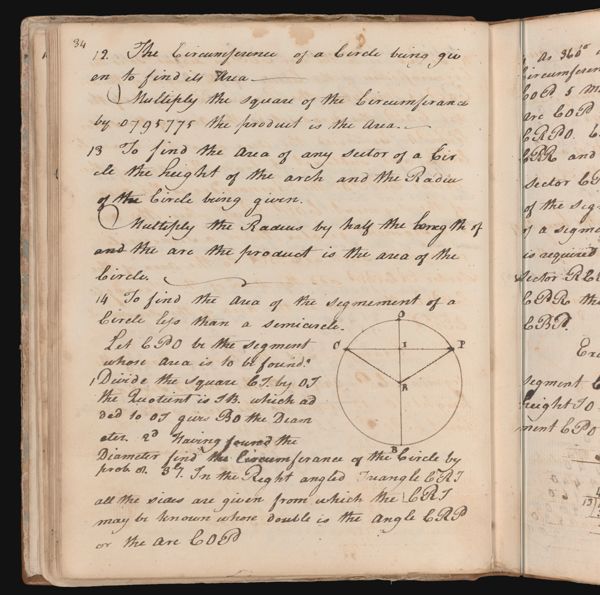 34
12. The Circumference of a Circle being giv
en to find its Area
Multiply the square of the Circumferance
by 0795775 the product is the Area.
13 To find the Area of any sector of a Cir
cle the height of the arch and the Radiu
of the Circle being given.
Multiply the Radius by half the length of
and the arc the product is the area of the
Circle.
14 To find the Area of the segmement of a
Circle less than a semicircle.
Let CPO be the segment
whose area is to be found.
1 Divide the square CI. by OI
the Quotient is IB. which ad
ded to OI givs BO the Diam
eter. 2d Having found the
Diameter find the Circumferance of the Circle by
prob 3ly. In the Right angled Triangle CRI
all the sides are given from which the CRI
may be known whose double is the Angle CRP
or the Arc COP
O
C
I
P
R
B
As 360°
Circumferen
COP
Arc COP
CRPO.
CPR and
Sector CP
of the seg
of a segme
is required
Sector RC
CPR the
CBP.
segment
height IO
ment CPO
13